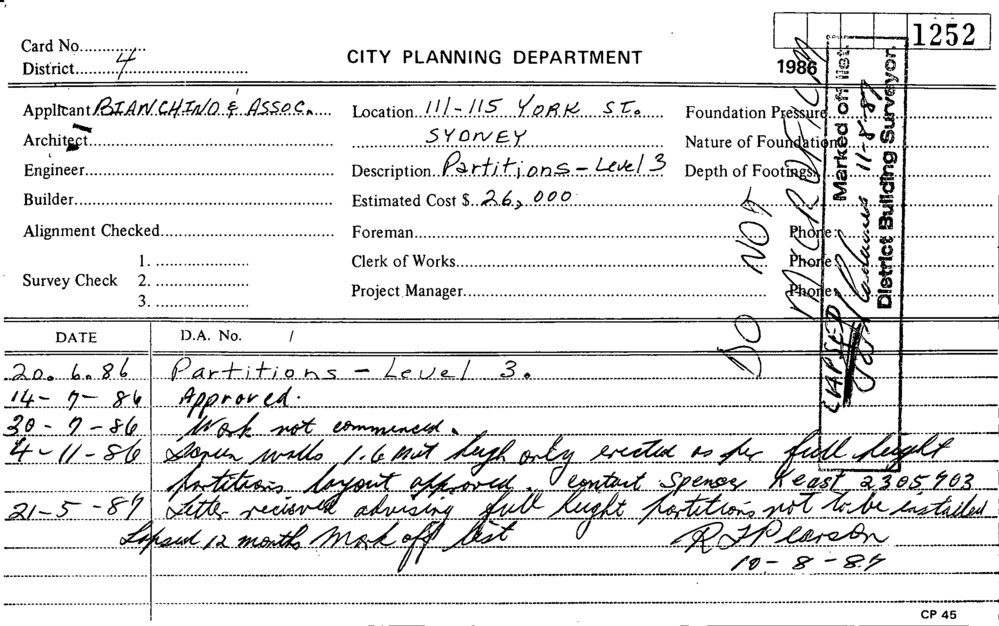 Card No.
1252
District 4
CITY PLANNING DEPARTMENT
1986
Applicant BIANCHINO & ASSOC.
Location 111-115 YORK ST.
Foundation Pressure
Architect
SYDNEY
Nature of Foundation
Engineer
Description Partitions - Level 3
Depth of Footings
Builder
Estimated Cost $ 26,000
Alignment Checked
Foreman
Phone:
1.
Clerk of Works
Phone:
Survey Check 2.
Project Manager
Phone:
3.
DO NOT MICROFILM
LAPSED
Marked off list.
11-8-87
District Building Surveyor.
DATE D.A. No. /
20.6.86 Partitions - Level 3.
14-7-86 Approved.
30-7-86 Work not commenced.
4-11-86 Screen walls 1.6 high only erected as per full height
partitions layout approved. contact Spencer Keast 2305703
21-5-87 Letter recieved advising full height partitions not to be installed
Lapsed 12 months Mark off list R J Pearson
10-8-87
CP 45